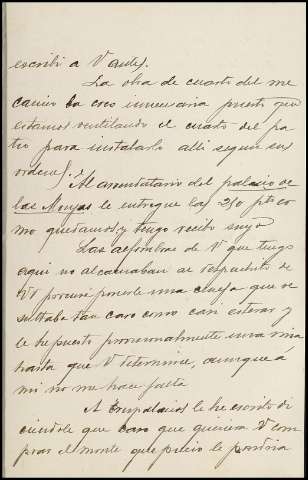 escribi a V antes.
La obra de cuarto del me
canico la creo innecesaria puesto que
estamos ventilando el cuarto del pa
tio para instalarlo alli segun sus
ordenes.
Al arrendatario del palacio de
las Monjas le entregue las 250 pts co
mo quedamos y tengo recibo suyo
Las alfombras de V que tengo
aqui no alcanzaban al despachito de
V y procuré ponerle una que
resultaba tan caro como con esterar y
le he puesto provisionalmente una mia
hasta que V determine, aunque á
mi no me hace falta
A le he escrito di
ciendole que caso que quisiera V com
prar el monte que precio le pondria